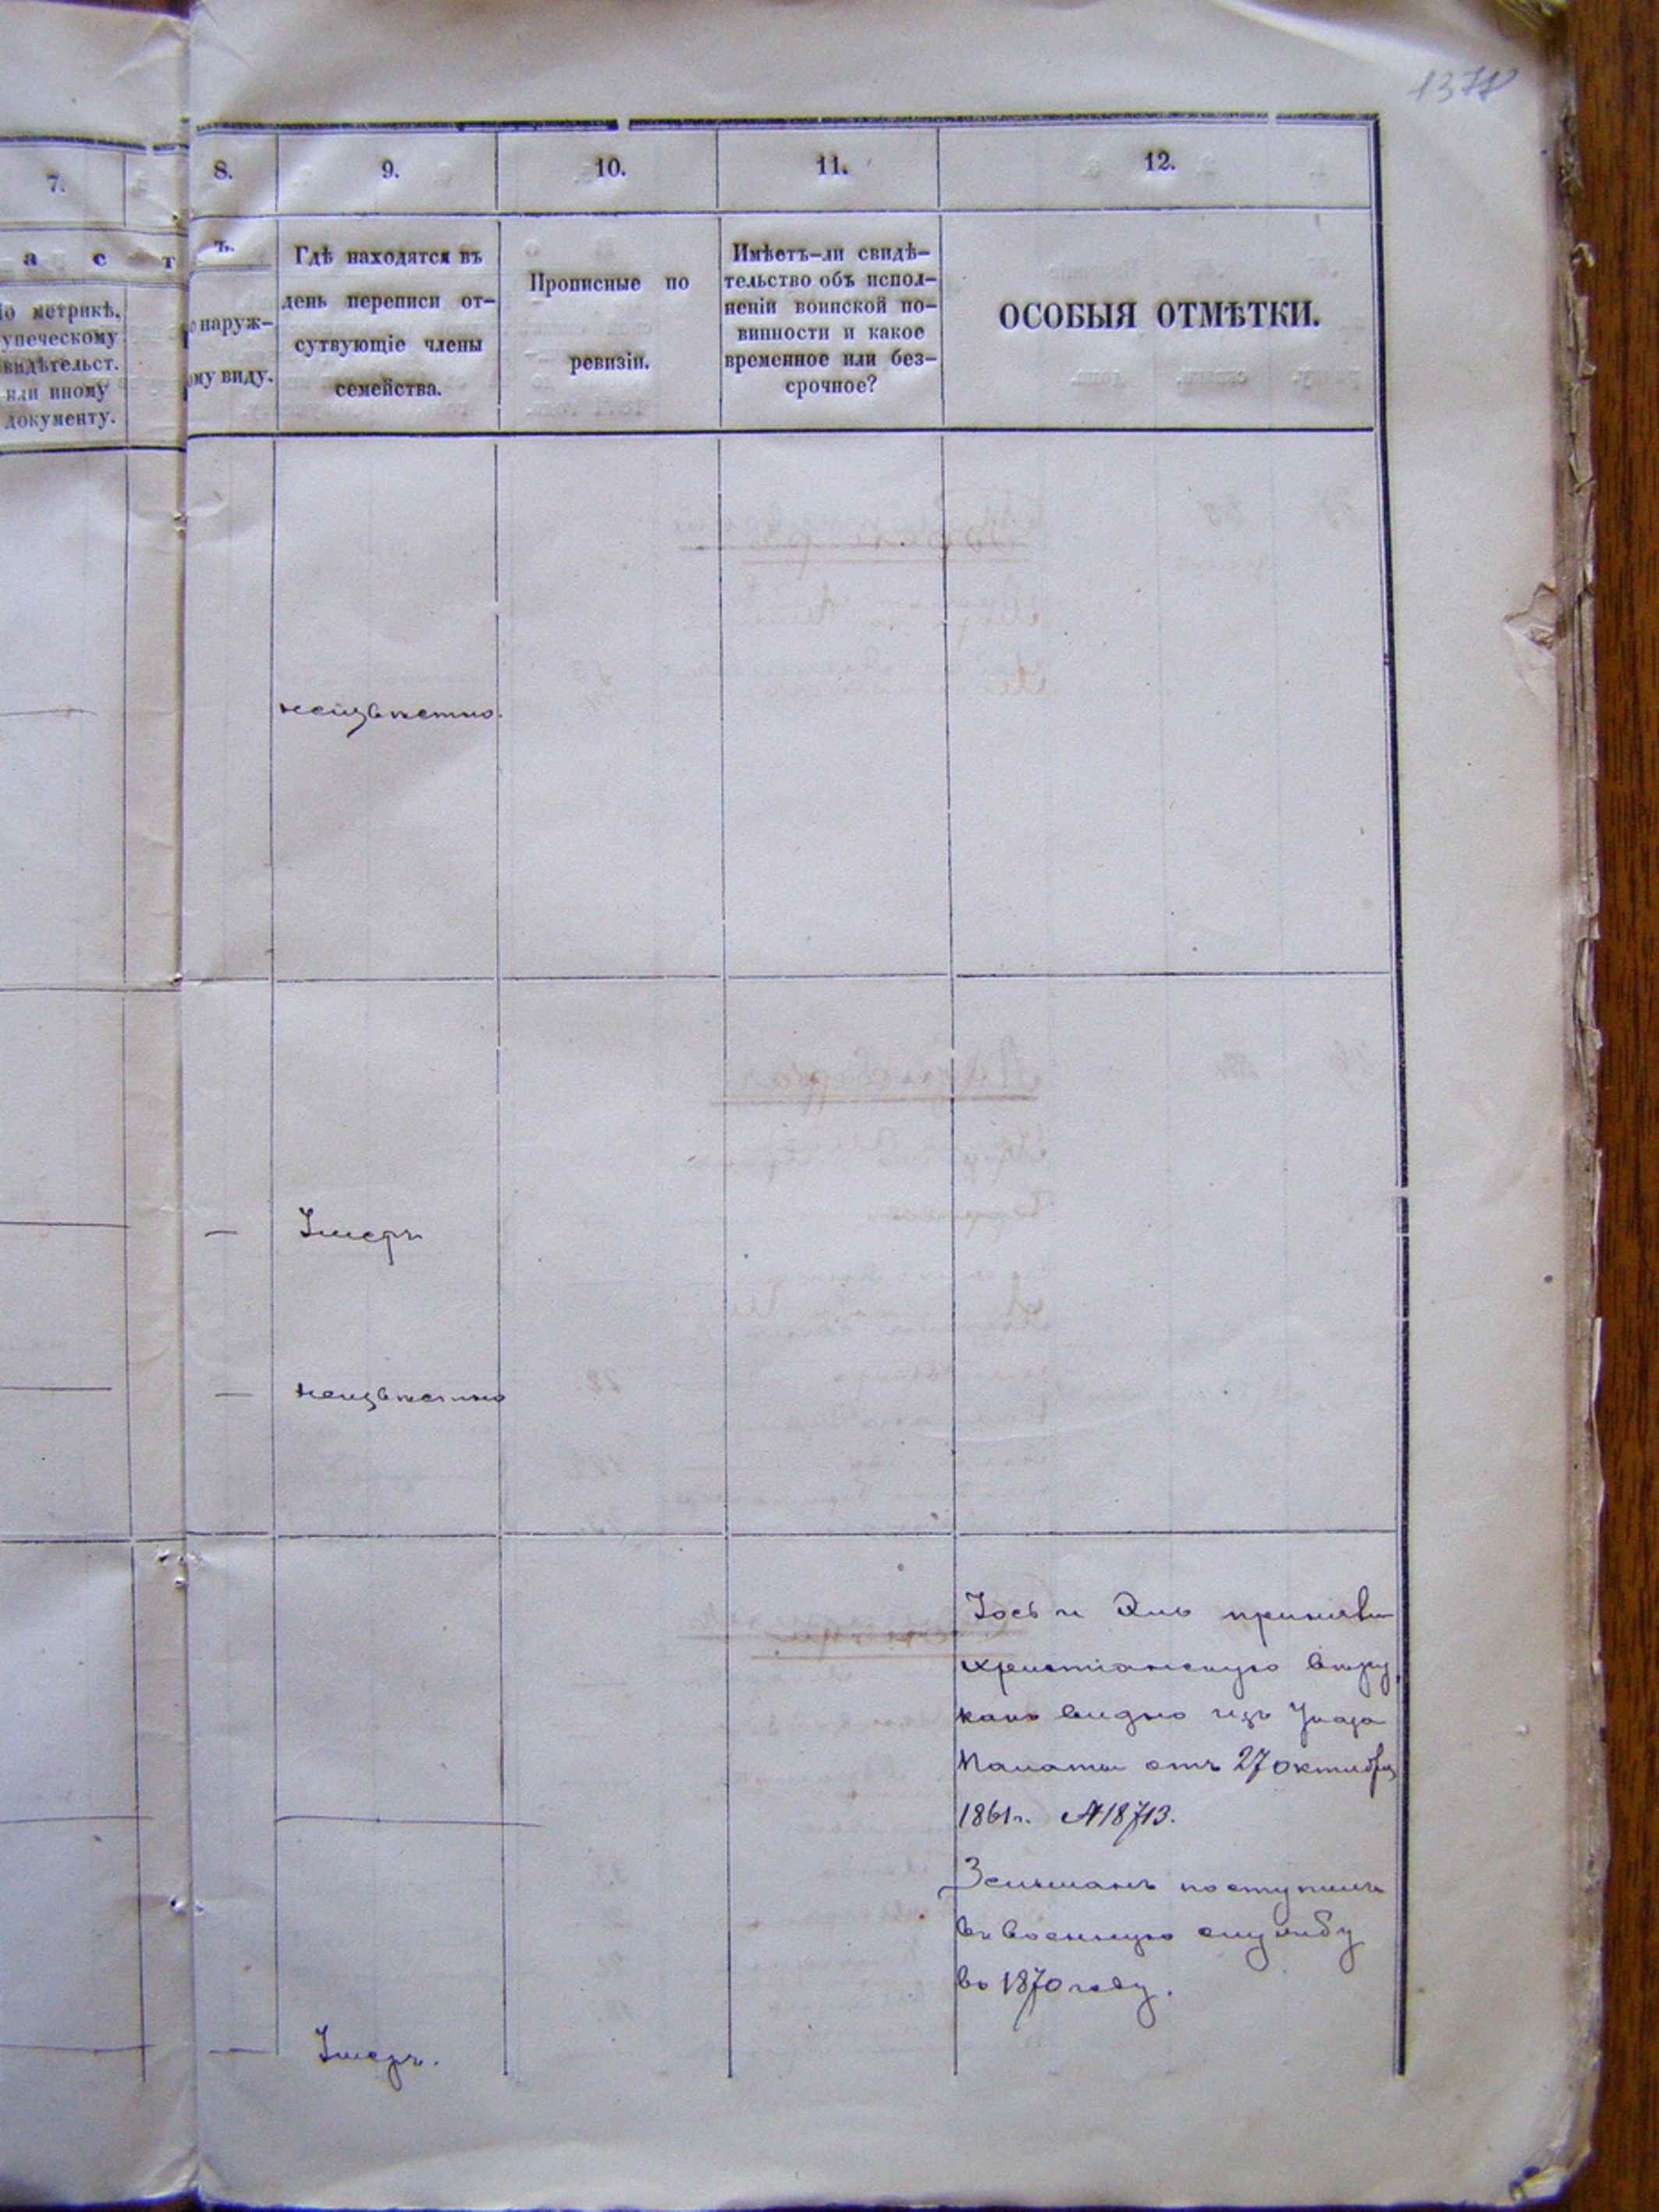 7.
8.
9.
10.
11.
12.
а с т
ъ.
о метрикѣ,
упеческому
видѣтельст.
или иному
документу.
о наруж-
ому виду.
Гдѣ находятся въ
день переписи от-
сутвующіе члены
семейства.
Прописные по
ревизіи.
Имѣетъ-ли свидѣ-
тельство объ испол-
неніи воинской по-
винности и какое
временное или без-
срочное?
ОСОБЫЯ ОТМѢТКИ.
неизвѣстно.
— Умеръ
— неизвѣстно
Іось и принявши
христіанскую вѣру,
какъ видно изъ Указа
Палаты отъ 27 октября
1861 г. № 18713.
Зельманъ поступилъ
въ военную службу
въ 1870 году.
— Умеръ.